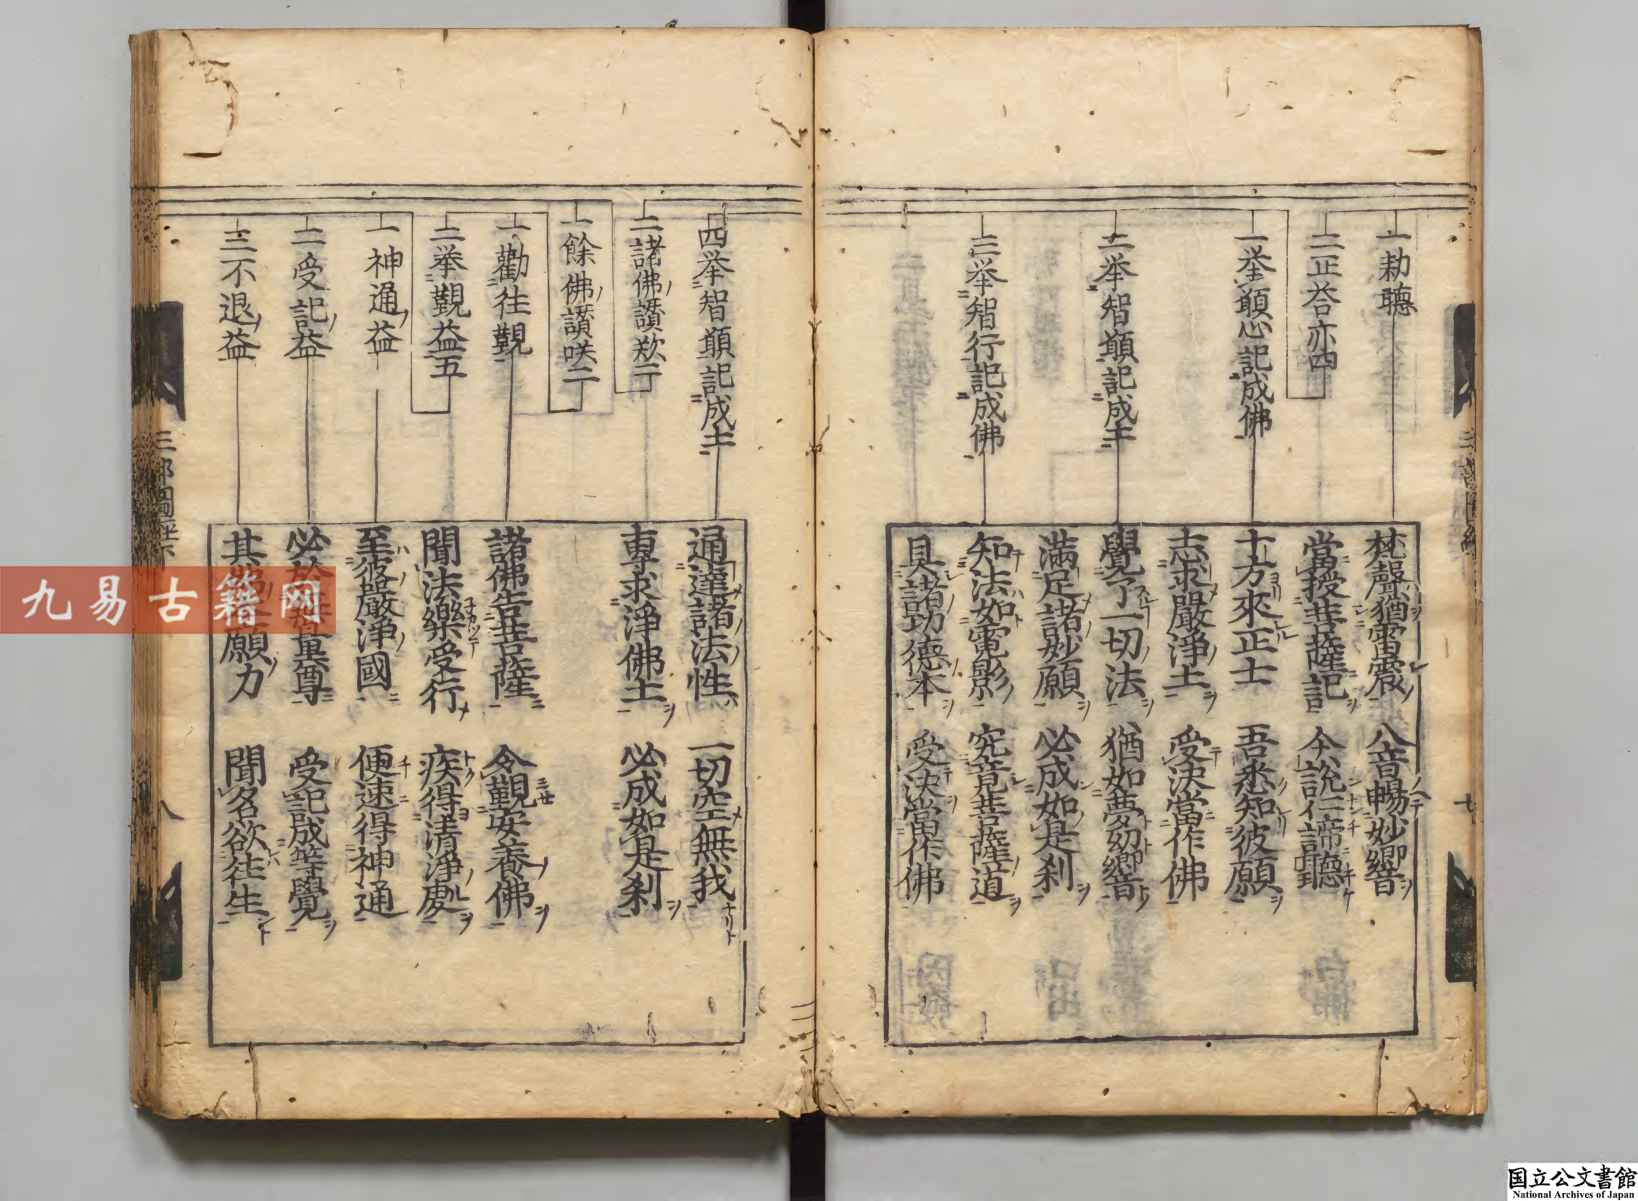 一勅聽
二正荅亦四
一举願心記成佛
二举智願記成土
三举智行記成佛
梵聲猶雷震 八音暢妙響
當授菩薩記 今說仁諦聽
十方來正士 吾悉知彼願
志求嚴淨土 受決當作佛
覺了一切法 猶如夢幻響
滿足諸妙願 必成如是刹
知法如電影 究竟菩薩道
具諸功德本 受決當作佛
七
四举智願記成土
二諸佛讚歎二
一餘佛讚咲二
一勸往觀
二举觀益五
一神通益
二受記益
三不退益
通達諸法性 一切空無我
專求淨佛土 必成如是刹
諸佛告菩薩 令覲安養佛
聞法樂受行 疾得清淨處
至彼嚴淨國 便速得神通
必於無量尊 受記成等覺
其佛本願力 聞名欲往生
三部圖經下
八
九易古籍网
国立公文書館
National Archives of Japan